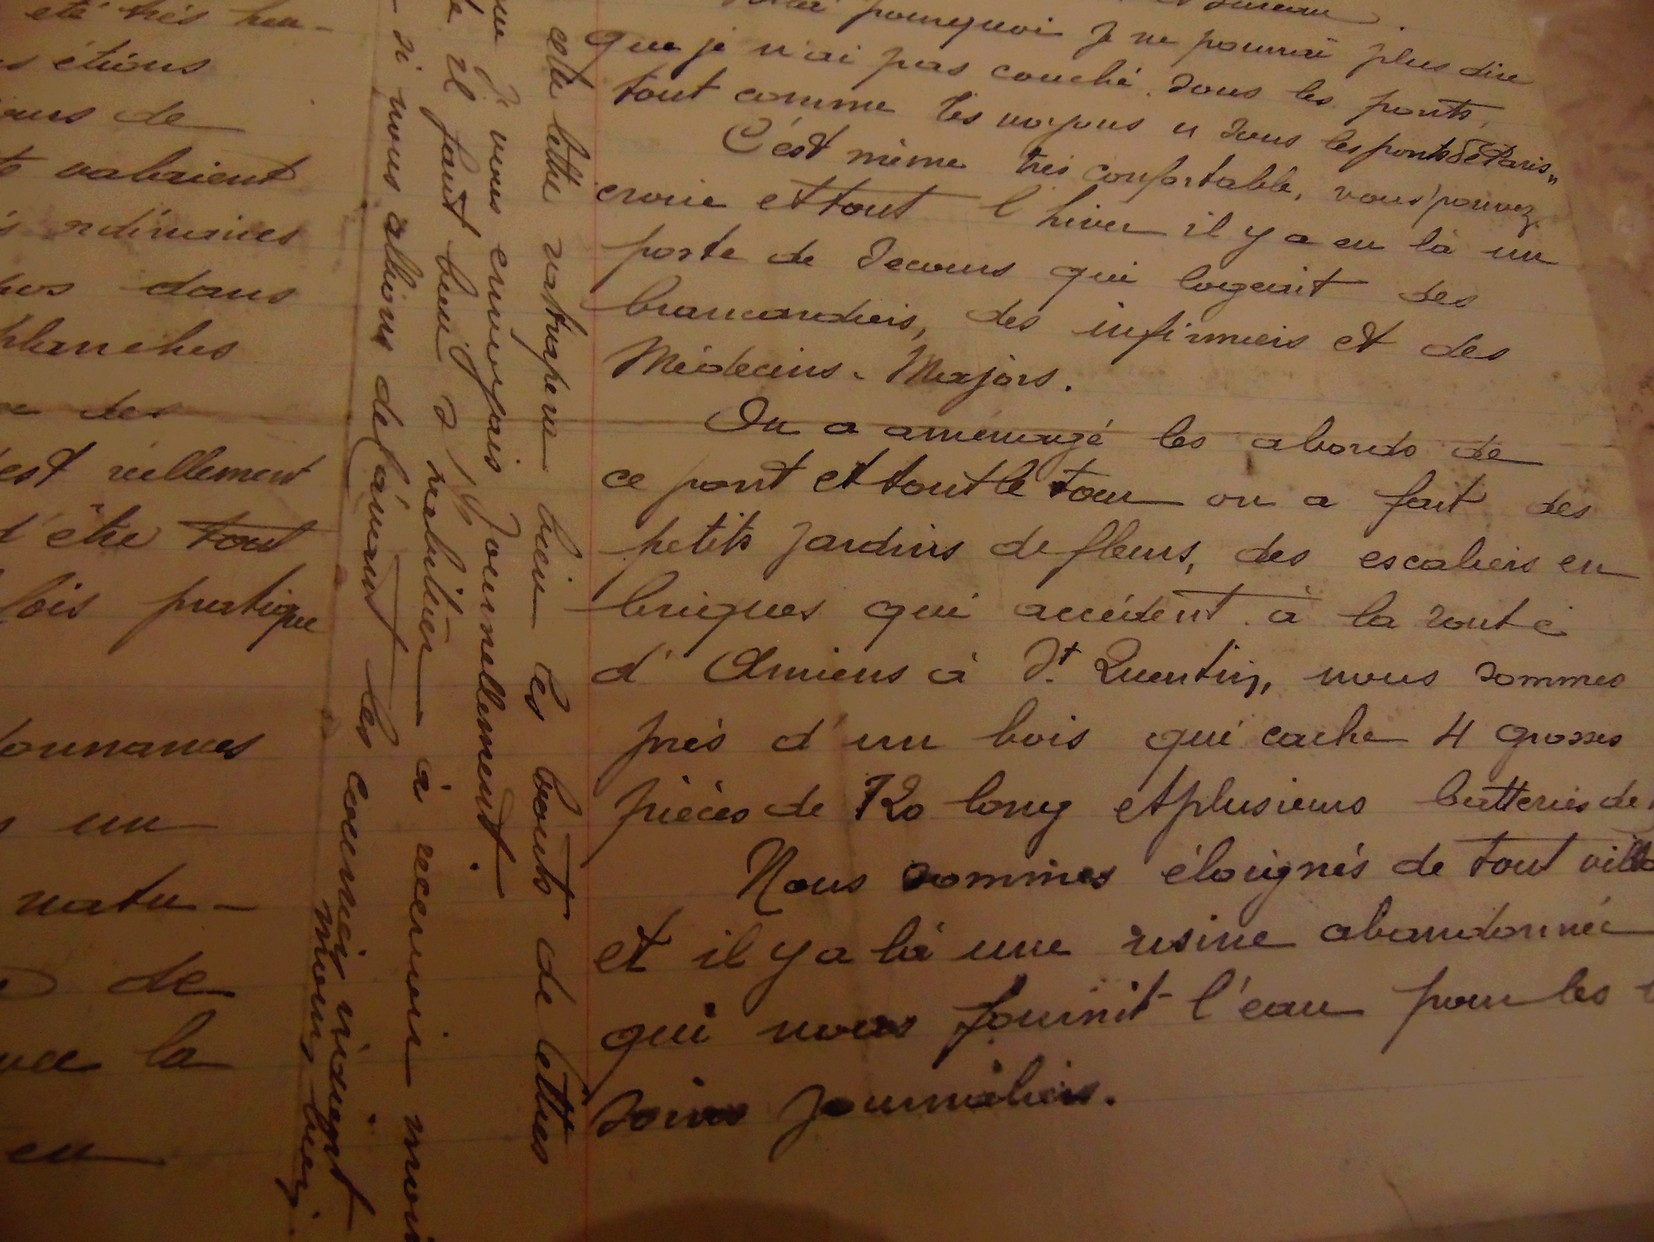 été très heu-
étions
ours de
valaient
ordinaires
dans
blanches
des
est réellement
d'être tout
fois pratique
ordonnances
un
natu-
de
la
en
cette lettre rattrapera bien les bouts de lettres
que je vous envoyais journellement.
il faut bien s'habituer à recevoir moins
si nous allions de l'avant les courriers viendraient
moins bien.
pourquoi je ne pourrai plus dire
que je n'ai pas couché sous les ponts,
tout comme les voyous " sous les ponts de Paris "
C'est même très confortable, vous pouvez
croire et tout l'hiver il y a eu là un
poste de secours qui logeait des
brancardiers, des infirmiers et des
Médecins-Majors.
On a aménagé les abords de
ce pont et tout le tour on a fait des
petits jardins de fleurs, des escaliers en
briques qui accèdent à la route
d'Amiens à St Quentin, nous sommes
près d'un bois qui cache 4 grosses
pièces de 120 long et plusieurs batteries de
Nous sommes éloignés de tout
et il y a là une usine abandonnée
qui nous fournit l'eau pour les
soins journaliers.